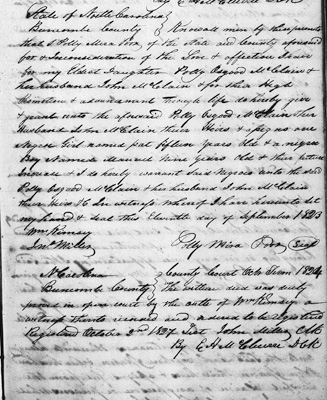 By E H McClure DCk
State of North Carolina
Buncombe County Know all men by these presents
that I Polly Mira Poor of the State and County aforesaid
for & Inconsideration of the love & affection I bear
for my Eldest Daughter Polly Osgood McClain &
her husband John McClain & for their
& advancement through life do hereby give
& grant unto the aforesaid Polly Osgood McClain & her
Husband John McClain their Heirs & assigns one
Negro Girl named pat fifteen Years Old & a negro
Boy Named Nine Years Old & their future
Increase & I do hereby warrant said Negroes unto the said
Polly Osgood McClain & her husband John McClain
their Heirs &c In witness whereof I have hereunto set
my hand & seal this Eleventh day of September 1823
Wm Kinsey
Jno Miller Polly Mira Poor Seal
N Carolina County Court Oct Term 1824
Buncombe County The within deed was duly
proven in open court by the oath of Wm Kinsey a
witness thereto and ordered to be registered
Registered October 2nd 1827 Test John Miller Clk
By E H McClure DCk